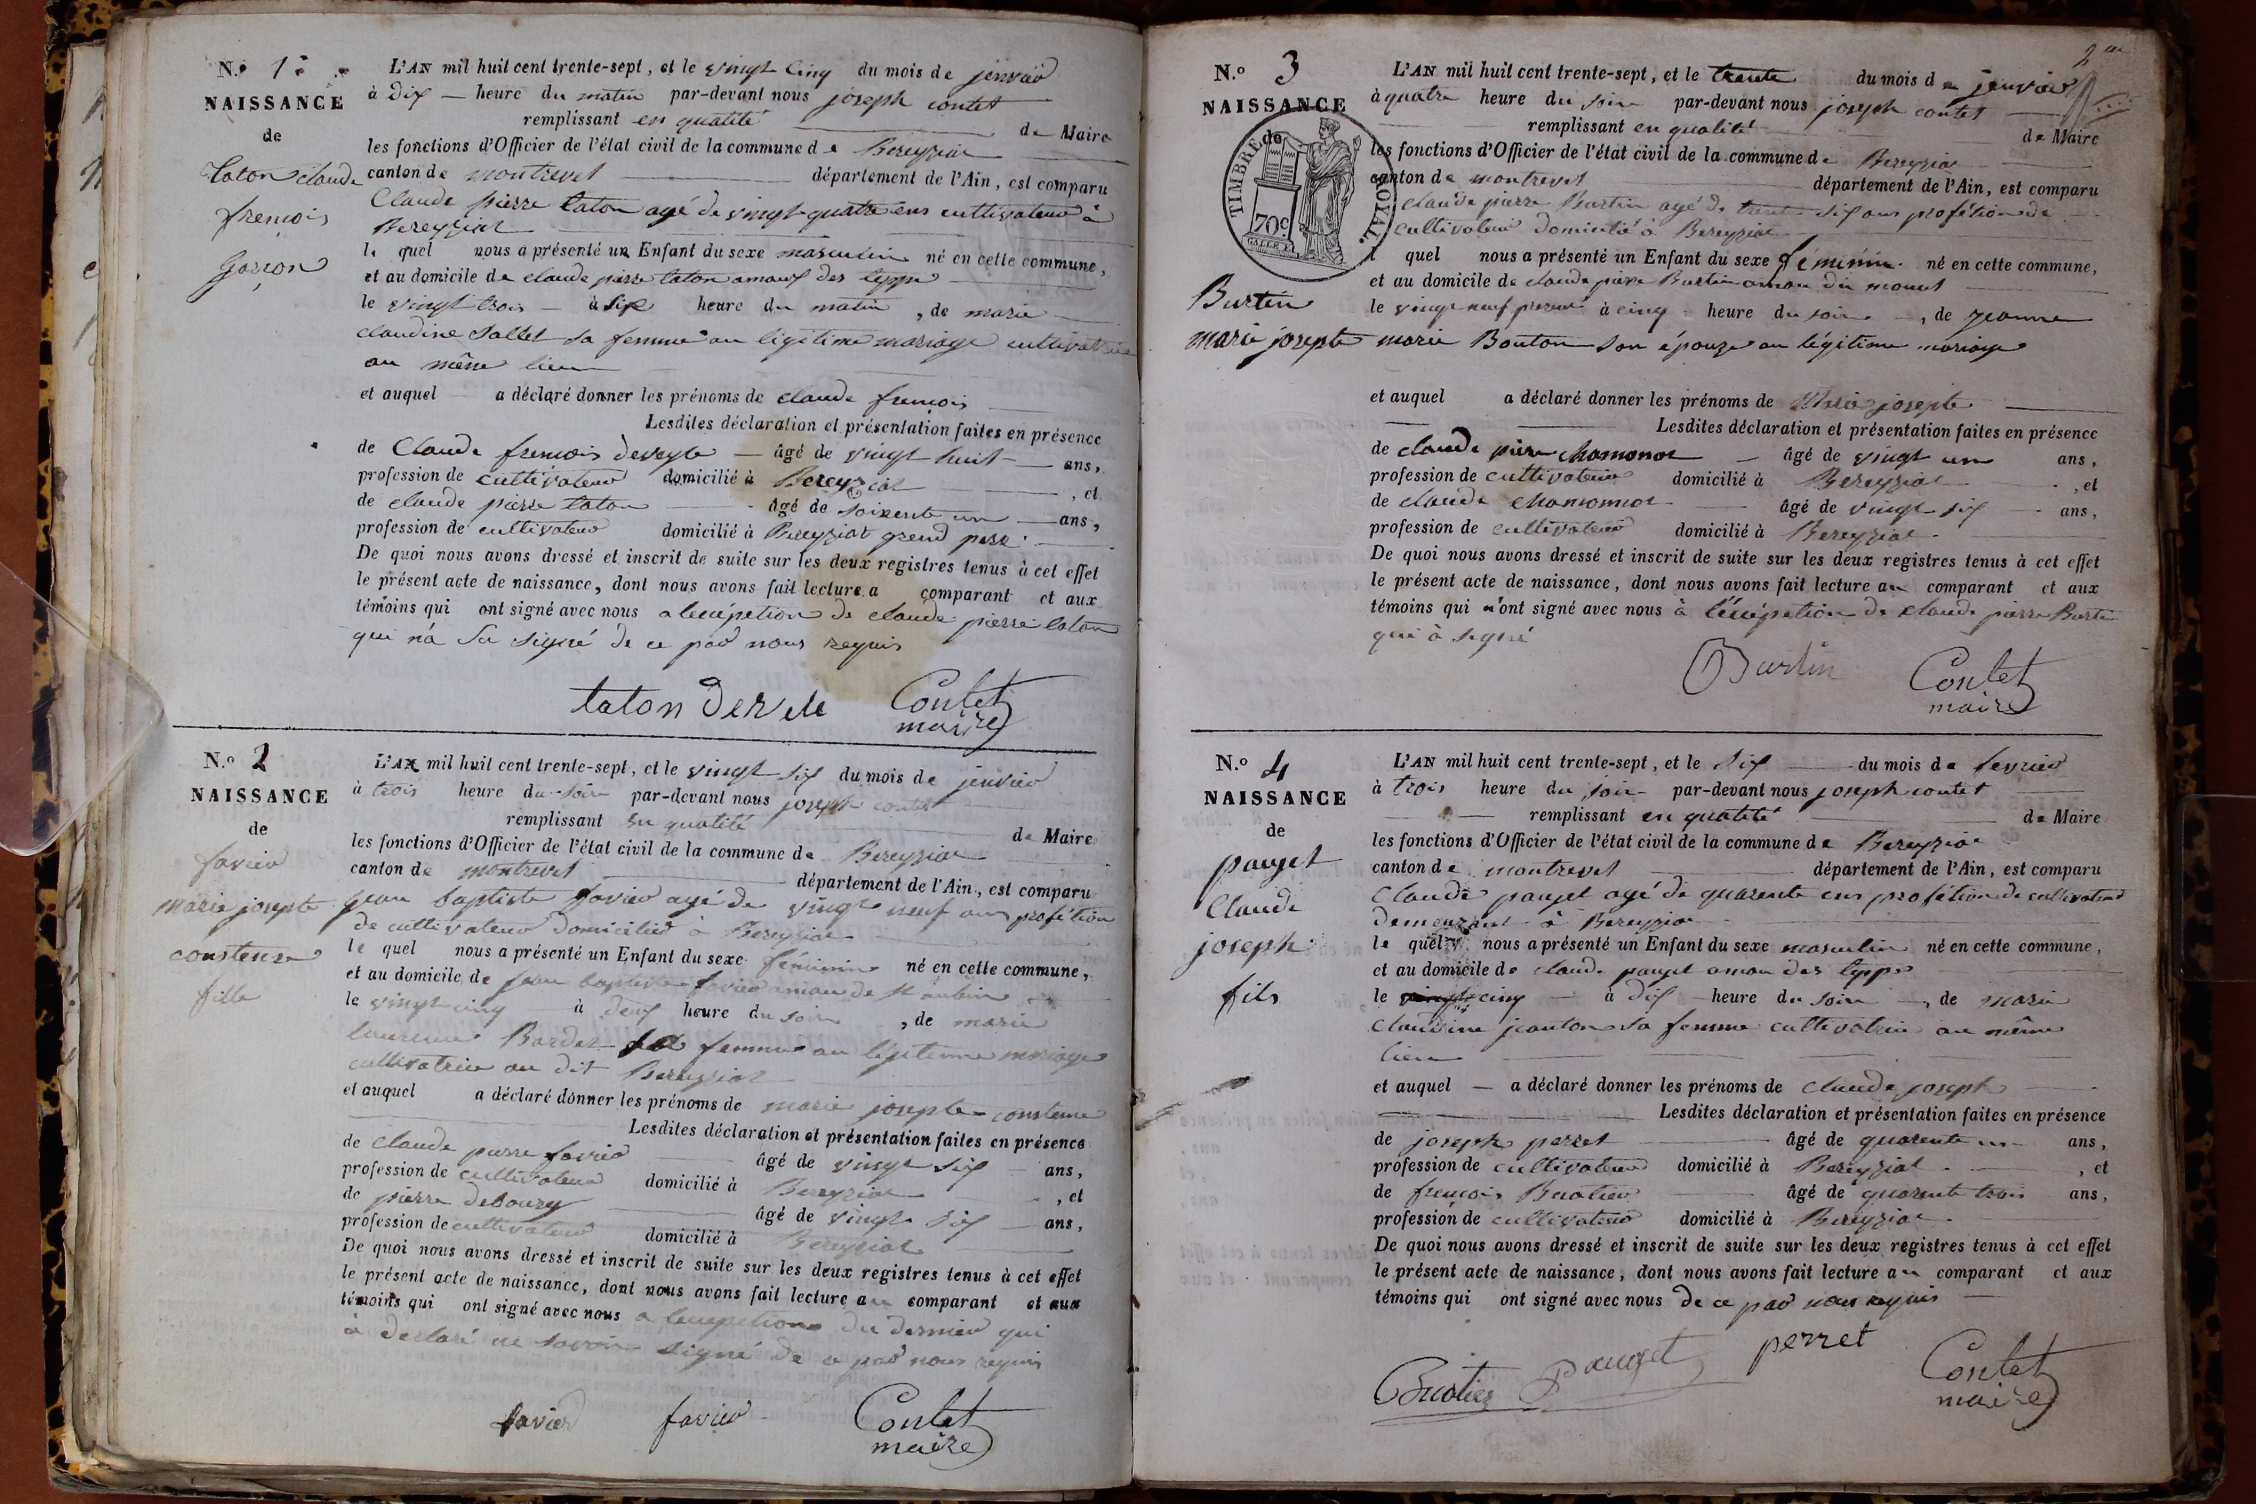 N.o 1
NAISSANCE
de
taton claude
frencois
Garçon
L'AN mil huit cent trente-sept, et le vingt cinq du mois de jenvier
à dix heure du matin par-devant nous joseph contet
remplissant en qualité de Maire
les fonctions d'Officier de l'état civil de la commune de Bereyziat
canton de montrevel département de l'Ain, est comparu
Claude pierre taton agé de vingt quatre ens cultivateur à
Bereyziat
le quel nous a présenté un Enfant du sexe masculin né en cette commune,
et au domicile de claude pierre taton amauf des teppe
le vingt trois à six heure du matin, de marie
claudine Sallet sa femme an légitime mariage cultivatrice
au même lieu
et auquel a déclaré donner les prénoms de claude frencois
Lesdites déclaration et présentation faites en présence
de Claude frencois deveyle âgé de vingt huit ans,
profession de cultivateur domicilié à Bereyziat, et
de claude pierre taton âgé de soixente un ans,
profession de cultivateur domicilié à Bereyziat grend pere
De quoi nous avons dressé et inscrit de suite sur les deux registres tenus à cet effet
le présent acte de naissance, dont nous avons fait lecture a comparant et aux
témoins qui ont signé avec nous a de claude pierre taton
qui n'a su signé de ce pad nous requis
taton Contet
maire
N.o 2
NAISSANCE
de
favier
marie josepte
constense
fille
L'AN mil huit cent trente-sept, et le vingt six du mois de jenvier
à trois heure du soir par-devant nous joseph contet
remplissant en qualité de Maire
les fonctions d'Officier de l'état civil de la commune de Bereyziat
canton de montrevel département de l'Ain, est comparu
jean baptiste favier agé de vingt neuf ans profétion
de cultivateur domicilié à Bereyziat
le quel nous a présenté un Enfant du sexe féminin né en cette commune,
et au domicile de jean baptiste favier amau de st aubin
le vingt cinq à deux heure du soir, de marie
laurence Bardet sa femme au légitime mariage
cultivatrice au dit Bereyziat
et auquel a déclaré donner les prénoms de marie josepte constense
Lesdites déclaration et présentation faites en présence
de claude pierre favier âgé de vingt six ans,
profession de cultivateur domicilié à Bereyziat, et
de pierre debourg âgé de vingt six ans,
profession de cultivateur domicilié à Bereyziat
De quoi nous avons dressé et inscrit de suite sur les deux registres tenus à cet effet
le présent acte de naissance, dont nous avons fait lecture au comparant et aux
témoins qui ont signé avec nous a du dernier qui
à declaré ne savoir signé de ce pad nous requis
favier favier Contet
maire
2me
N.o 3
NAISSANCE
de
TIMBRE ROYAL.
70c.
Burtin
marie josepte
L'AN mil huit cent trente-sept, et le trente du mois de jenvier
à quatre heure du soir par-devant nous joseph contet
remplissant en qualité de Maire
les fonctions d'Officier de l'état civil de la commune de Bereyziat
canton de montrevel département de l'Ain, est comparu
claude pierre Burtin agé de trente six ans profétion de
cultivateur domicilié à Bereyziat
l quel nous a présenté un Enfant du sexe féminin né en cette commune,
et au domicile de claude pierre Burtin amau du
le vingt neuf present à cinq heure du soir, de jeanne
marie Bouton son épouze au légitime mariage
et auquel a déclaré donner les prénoms de josepte
Lesdites déclaration et présentation faites en présence
de claude pierre chamonat âgé de vingt un ans,
profession de cultivateur domicilié à Bereyziat, et
de claude chamonnat âgé de vingt six ans,
profession de cultivateur domicilié à Bereyziat
De quoi nous avons dressé et inscrit de suite sur les deux registres tenus à cet effet
le présent acte de naissance, dont nous avons fait lecture au comparant et aux
témoins qui n'ont signé avec nous à de claude pierre Burtin
qui à signé
Burtin Contet
maire
N.o 4
NAISSANCE
de
pauget
Claude
joseph
fils
L'AN mil huit cent trente-sept, et le six du mois de fevrier
à trois heure du soir par-devant nous joseph contet
remplissant en qualité de Maire
les fonctions d'Officier de l'état civil de la commune de Bereyziat
canton de montrevel département de l'Ain, est comparu
Claude pauget agé de quarente ens profétion de cultivateur
demeurant à Bereyziat
le quel nous a présenté un Enfant du sexe masculin né en cette commune,
et au domicile de claude pauget amau des teppes
le cinq à dix heure du soir, de marie
claudine jeanton sa femme cultivatrice au même
lieu
et auquel a déclaré donner les prénoms de claude joseph
Lesdites déclaration et présentation faites en présence
de joseph perret âgé de quarente un ans,
profession de cultivateur domicilié à Bereyziat, et
de frencois Buatier âgé de quarente trois ans,
profession de cultivateur domicilié à Bereyziat
De quoi nous avons dressé et inscrit de suite sur les deux registres tenus à cet effet
le présent acte de naissance, dont nous avons fait lecture au comparant et aux
témoins qui ont signé avec nous de ce pad nous requis
Buatier pauget perret Contet
maire